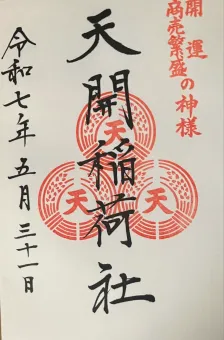 開運
商売繁盛の神様
天開稲荷社
天
天
天
令和七年五月三十一日